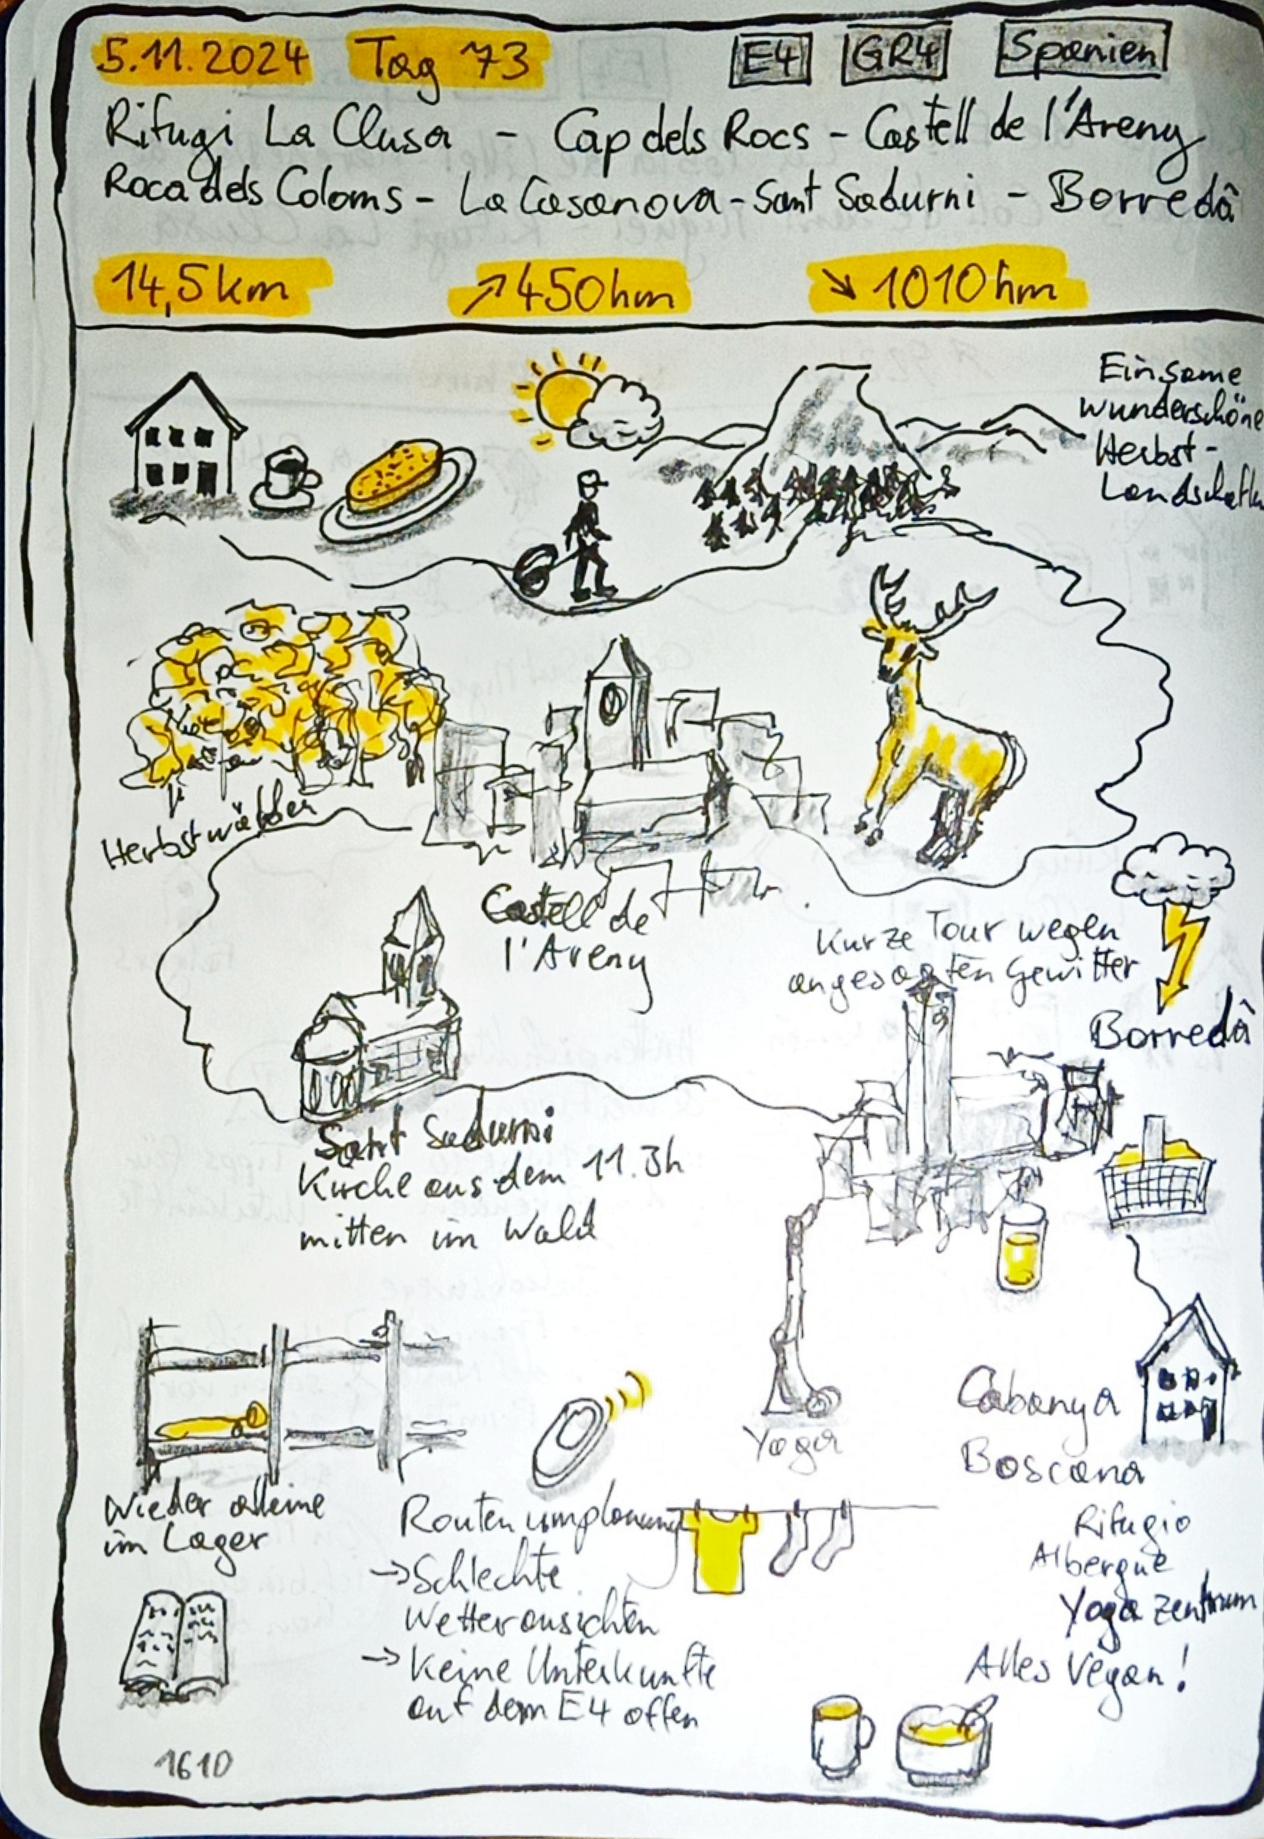 5.11.2024 Tag 73 E4 GR4 Spanien
Rifugi La Clusa - Cap dels Rocs - Castell de l'Areny
Roca dels Coloms - La Casanova - Sant Sadurni - Borredâ
14,5km ↗450hm ↘1010hm
Einsame
wunderschöne
Herbst-
Landschaften
Herbstwälder
Castell de
l'Areny
Kurze Tour wegen
angesagten Gewitter
Borredâ
Sant Sadurni
Kirche aus dem 11. Jh
mitten im Wald
Yoga
Cabanya
Boscana
Rifugio
Albergue
Yoga Zentrum
Alles Vegan!
Wieder alleine
im Lager
Routenumplanung
→ Schlechte
Wetteraussichten
→ Keine Unterkünfte
auf dem E4 offen
1610